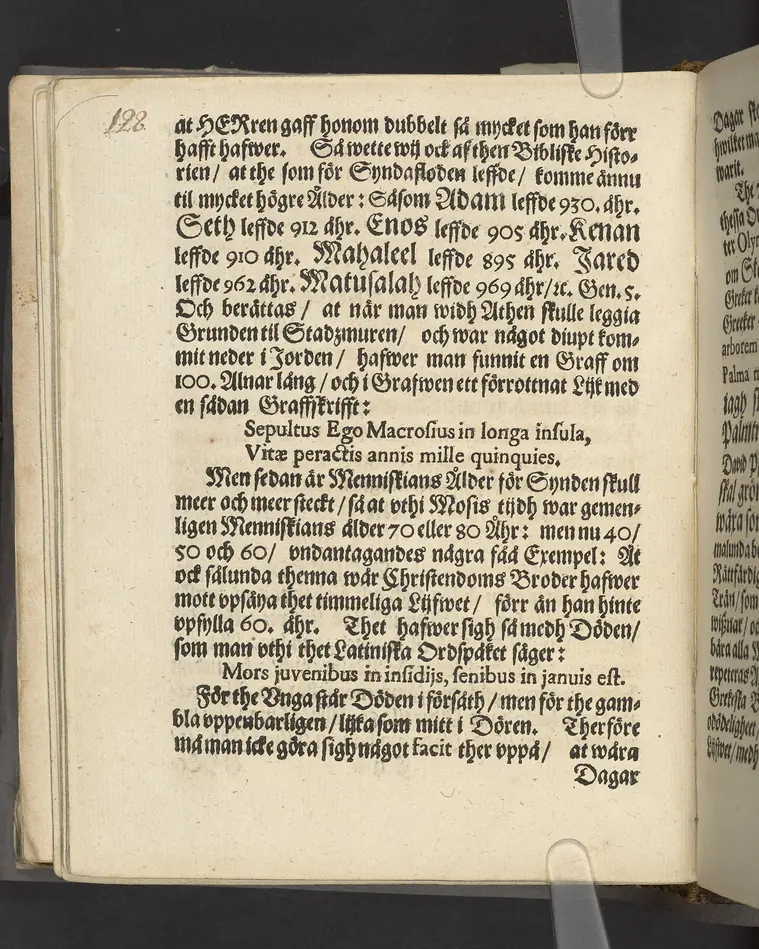 128.
at HERren gaff honom dubbelt så mycket som han förr
hafft hafwer. Så wette wij ock af then Bibliske Histo-
rien/ at the som för Syndafloden leffde/ komme ännu
til mycket högre Ålder: Såsom Adam leffde 930. åhr.
Seth leffde 912 åhr. Enos leffde 905 åhr. Kenan
leffde 910 åhr. Mahaleel leffde 895 åhr. Jared
leffde 962 åhr. Matusalah leffde 969 åhr/ ꝛc. Gen. 5.
Och berättas / at när man widh Athen skulle leggia
Grunden til Stadzmuren/ och war något diupt kom-
mit neder i Jorden / hafwer man funnit en Graff om
100. Alnar lång / och i Grafwen ett förrottnat Lijk med
en sådan Graffskrifft:
Sepultus Ego Macrosius in longa insula,
Vitæ peractis annis mille quinquies.
Men sedan är Menniskians Ålder för Synden skull
meer och meer steckt / så at vthi Mosis tijdh war gemen-
ligen Menniskians ålder 70 eller 80 Åhr: men nu 40/
50 och 60/ vndantagandes några fåå Exempel: At
ock sålunda thenna wår Christendoms Broder hafwer
mott vpsäya thet timmeliga Lijfwet/ förr än han hinte
vpfylla 60. åhr. Thet hafwer sigh så medh Döden/
som man vthi thet Latiniska Ordspåket säger:
Mors juvenibus in insidijs, senibus in januis est.
För the Vnga står Döden i försåth / men för the gam-
bla vppenbarligen / lijka som mitt i Dören. Therföre
må man icke göra sigh något facit ther vppå/ at wåra
Dagar
Palma
arborem